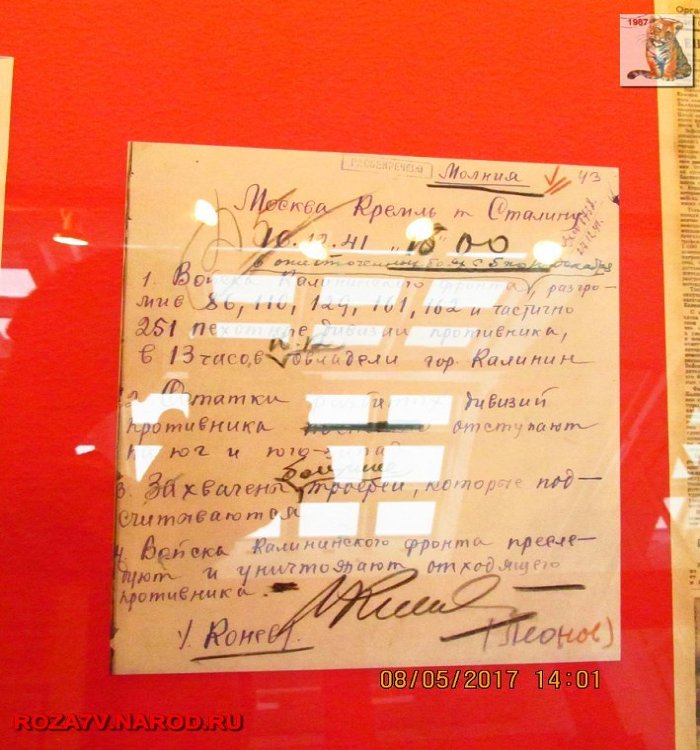 1987
Орга
РАССЕКРЕЧЕНО
Молния
43
Москва Кремль т. Сталину
16.12.41 "16" 00
в ожесточенных боях с 5 по 16 декабря
1. Войска Калининского фронта, разгро-
мив 86, 110, 129, 161, 162 и частично
251 пехотные дивизии противника,
в 13 часов овладели гор. Калинин
2. Остатки разбитых дивизий
противника отступают
на юг и юго-запад
большие
3. Захвачены трофеи, которые под-
считываются
4. Войска Калининского фронта пресле-
дуют и уничтожают отходящего
противника.
Конев.
(Леонов)
08/05/2017 14:01
ROZAYV.NAROD.RU